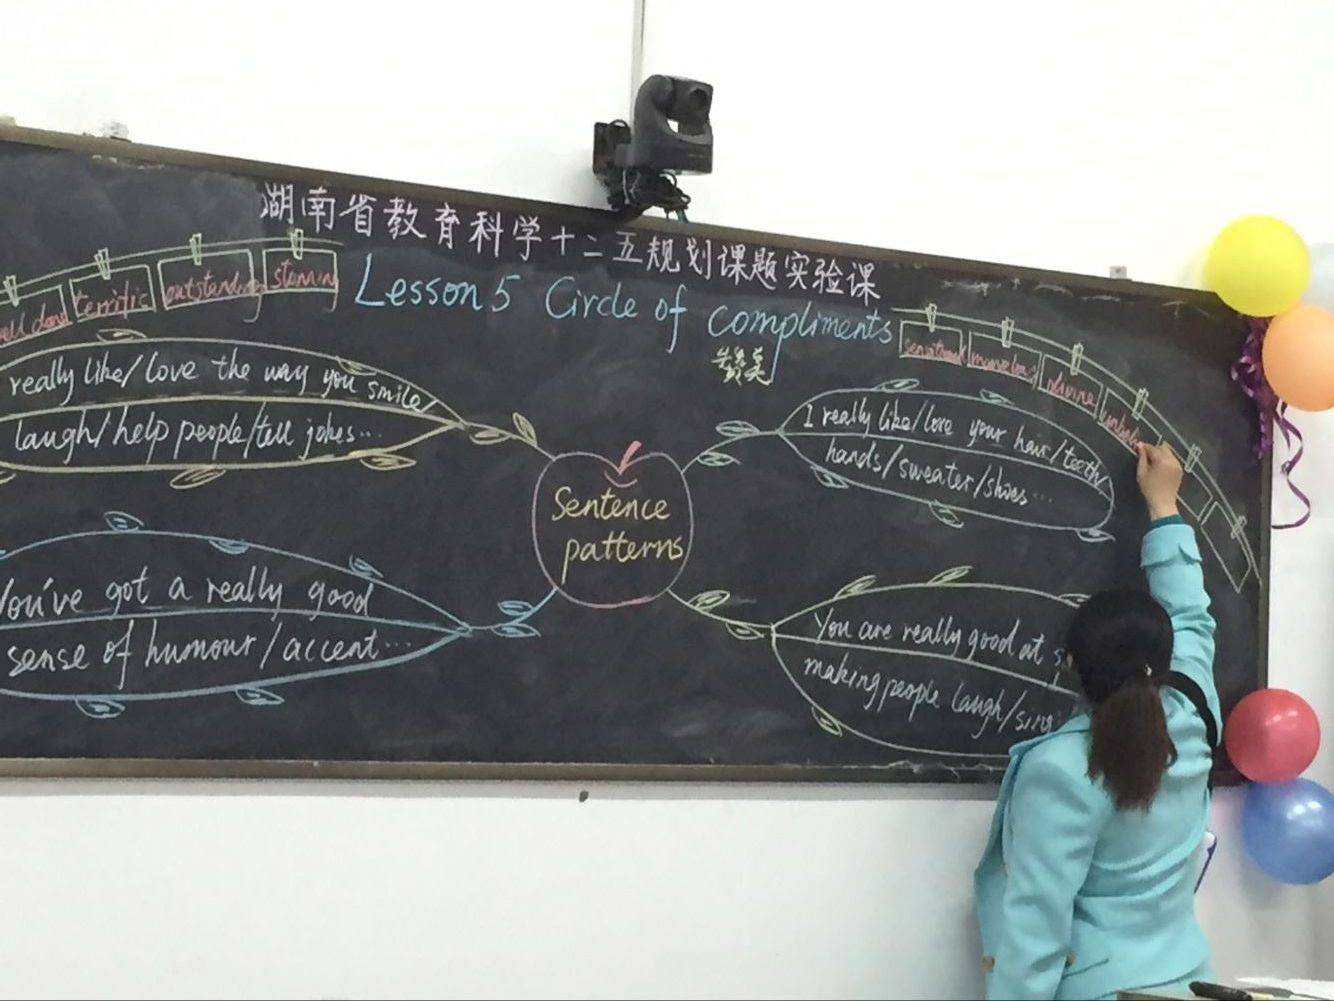 湖南省教育科学十二五规划课题实验课
Lesson 5 Circle of compliments
赞美
well done
terrific
outstanding
stunning
sensational
marvelous
divine
really like/love the way you smile/
laugh/help people/tell jokes...
I really like/love your hair/teeth/
hands/sweater/shoes...
Sentence
patterns
You've got a really good
sense of humour/accent...
You are really good at
making people laugh/sing